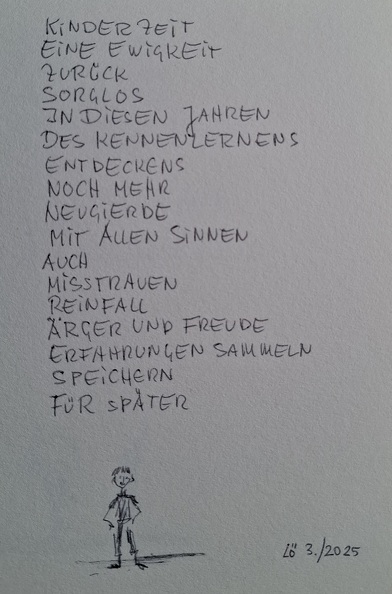 KINDERZEIT
EINE EWIGKEIT
ZURÜCK
SORGLOS
IN DIESEN JAHREN
DES KENNENLERNENS
ENTDECKENS
NOCH MEHR
NEUGIERDE
MIT ALLEN SINNEN
AUCH
MISSTRAUEN
REINFALL
ÄRGER UND FREUDE
ERFAHRUNGEN SAMMELN
SPEICHERN
FÜR SPÄTER
Lö 3./2025